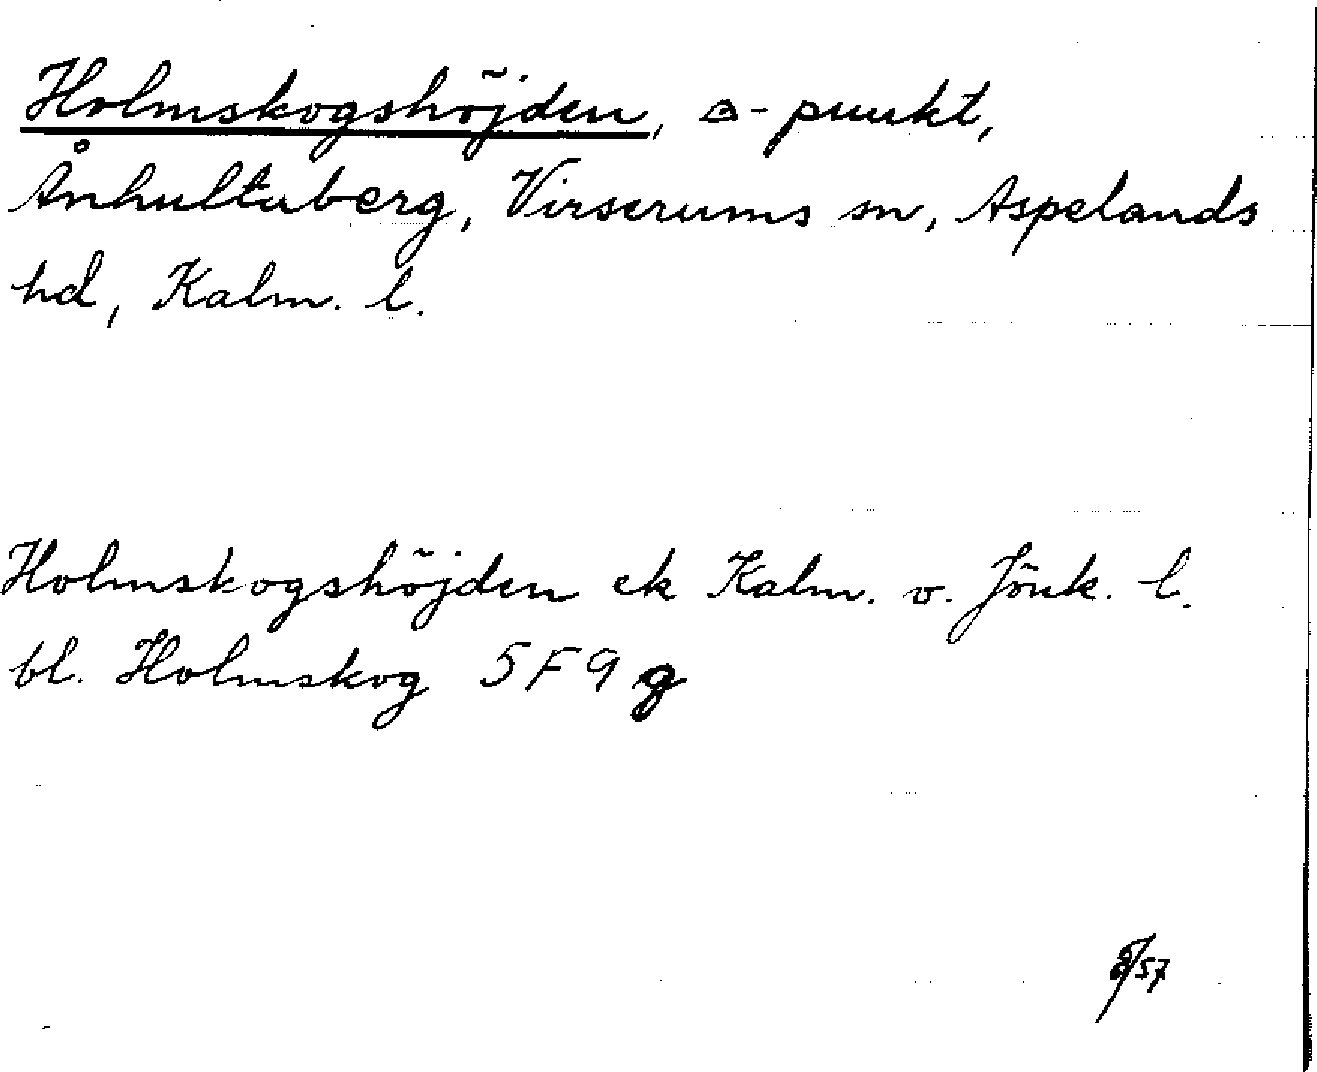 Holmskogshöjden, △-punkt,
Ånhultaberg, Virserums sn, Aspelands
hd, Kalm. l.
Holmskogshöjden ek Kalm. o. Jönk. l.
bl. Holmskog 5F9g
/57